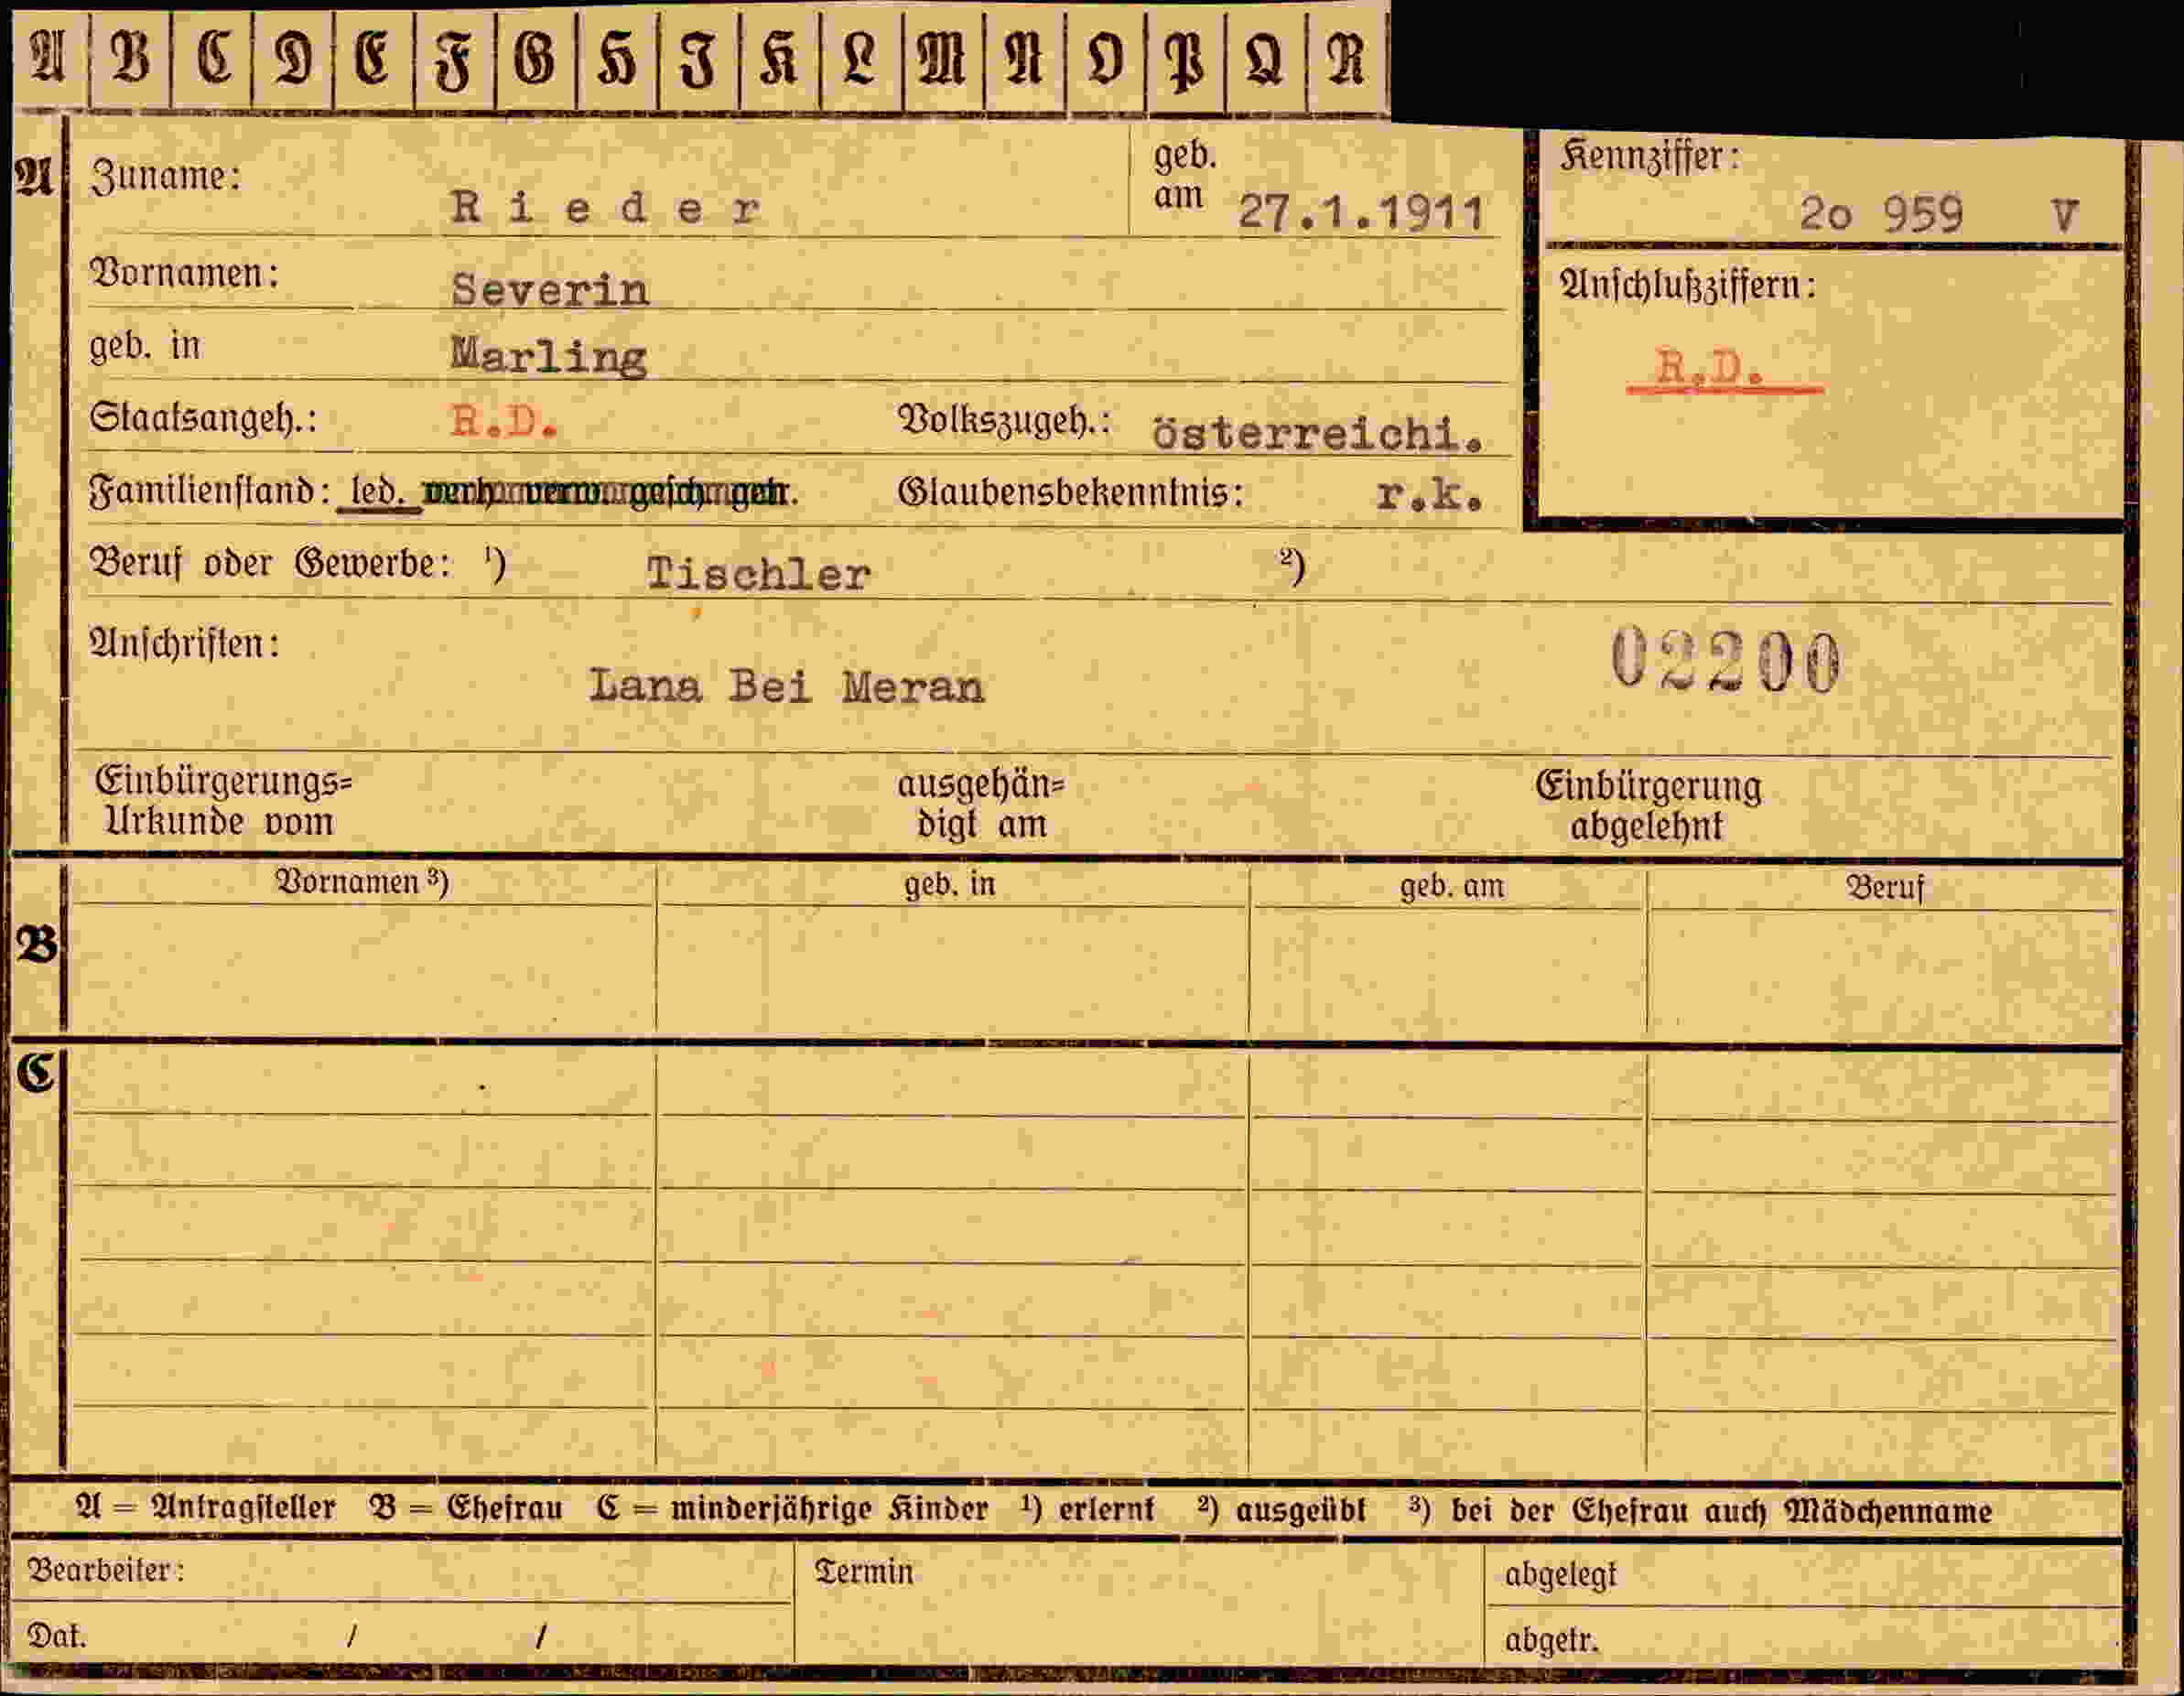 A B C D E F G H I K L M N O P Q R
A Zuname: Rieder geb. am 27.1.1911
Kennziffer: 2o 959 V
Vornamen: Severin
Anschlußziffern:
R.D.
geb. in Marling
Staatsangeh.: R.D. Volkszugeh.: österreichi.
Familienstand: led. verh. verw. gesch. getr. Glaubensbekenntnis: r.k.
Beruf oder Gewerbe: ¹) Tischler ²)
Anschriften: 02200
Lana Bei Meran
Einbürgerungs= ausgehän= Einbürgerung
Urkunde vom digt am abgelehnt
Vornamen ³) geb. in geb. am Beruf
B
C
A = Antragsteller B = Ehefrau C = minderjährige Kinder ¹) erlernt ²) ausgeübt ³) bei der Ehefrau auch Mädchenname
Bearbeiter: Termin abgelegt
Dat. / / abgetr.